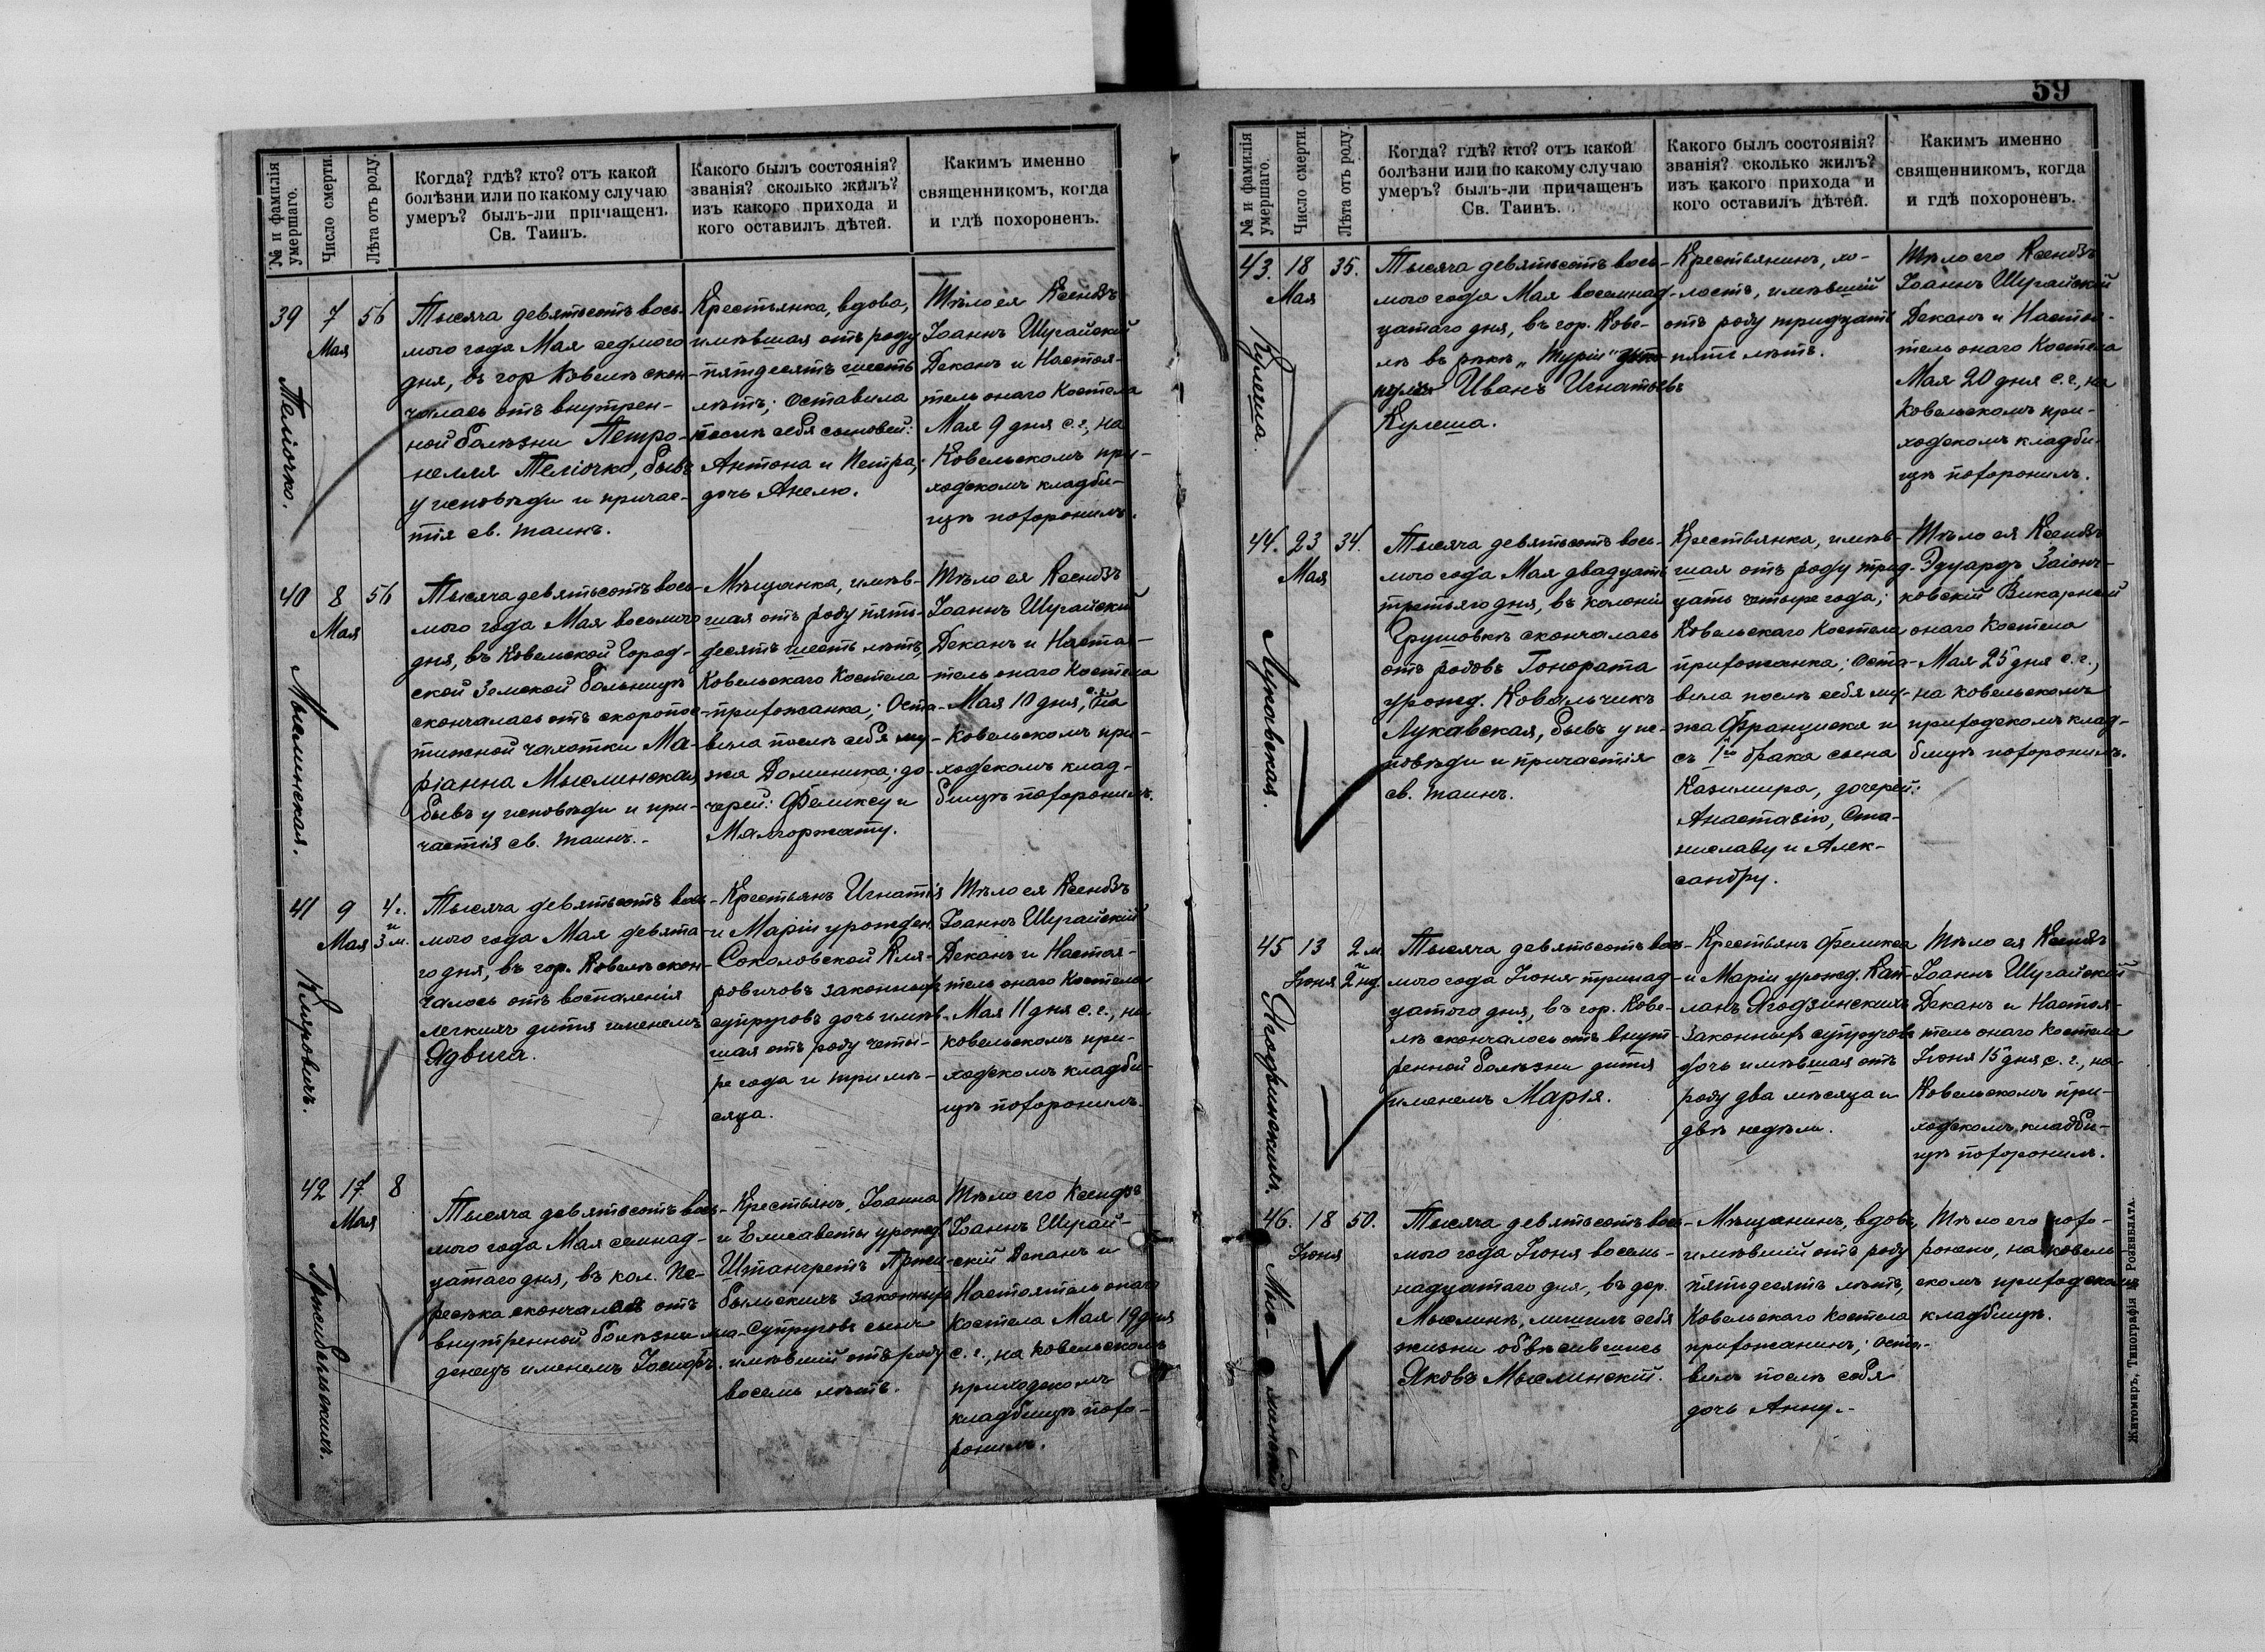 № и фамилія
умершаго.
Число смерти.
Лѣта отъ роду.
Когда? гдѣ? кто? отъ какой
болѣзни или по какому случаю
умеръ? былъ-ли причащенъ
Св. Таинъ.
Какого былъ состоянія?
званія? сколько жилъ?
изъ какого прихода и
кого оставилъ дѣтей.
Какимъ именно
священникомъ, когда
и гдѣ похороненъ.
39
7
Мая
56
Пеліочко.
Тысяча девятьсотъ вось-
мого года Мая седмого
дня, въ гор Ковелѣ скон-
чалась отъ внутрен-
ной болѣзни Петро-
нелля Пеліочко, бывъ
у исповѣди и причас-
тія св. таинъ.
Крестьянка, вдова,
имѣвшая отъ роду
пятдесятъ шесть
лѣтъ; оставила
послѣ себя сыновей:
Антона и Петра;
дочь Анелю.
Тѣло ея Ксендзъ
Іоаннъ Шугайскій
Деканъ и Настоя-
тель онаго Костела
Мая 9 дня с. г., на
Ковельскомъ при-
ходскомъ кладби-
щѣ похоронилъ.
40
8
Мая
56
Мыслинская.
Тысяча девятьсотъ вось-
мого года Мая восьмого
дня, въ Ковельской Город-
ской Земской больницѣ
скончалась отъ скоропос-
тижной чахотки Ма-
ріанна Мыслинская
бывъ у исповѣди и при-
частія св. таинъ.-
Мѣщанка, имѣв-
шая отъ роду пять-
десятъ шесть лѣтъ,
Ковельскаго Костела
прихожанка; Оста-
вила послѣ себя му-
жа Доминика; до-
черей: Феликсу и
Малгоржату.
Тѣло ея Ксендзъ
Іоаннъ Шугайскій
Деканъ и Настоя-
тель онаго Костела
Мая 10 дня, на
Ковельскомъ при-
ходскомъ клад-
бищѣ похоронилъ.
41
9
Мая
4 г.
и
3 м.
Кляровичъ.
Тысяча девятьсотъ вось-
мого года Мая девята-
го дня, въ гор. Ковелѣ скон-
чалось отъ воспаленія
легкихъ дитя именемъ
Ядвига.
Крестьянъ Игнатія
и Маріи урожден.
Соколовской Кля-
ровичовъ законныхъ
супруговъ дочь имѣв-
шая отъ роду четы-
ре года и три мѣ-
сяца.
Тѣло ея Ксендзъ
Іоаннъ Шугайскій
Деканъ и Настоя-
тель онаго Костела
Мая 11 дня с. г., на
ковельскомъ при-
ходскомъ кладби-
щѣ похоронилъ.
42
17
Мая
8
Тысяча девятьсотъ вось-
мого года Мая семнад-
цатаго дня, въ кол. Пе-
ресѣка скончался отъ
внутренной болѣзни мла-
денецъ именемъ Іосифъ.
Крестьянъ, Іоанна
и Елисаветы урожд.
Штангретъ
законныхъ
Супруговъ сынъ
имѣвшій отъ роду
восемь лѣтъ.
Тѣло его Ксендзъ
Іоаннъ Шугай-
скій Деканъ и
Настоятель онаго
Костела Мая 19 дня
с. г., на ковельскомъ
приходскомъ
кладбищѣ похо-
ронилъ.
59
№ и фамилія
умершаго.
Число смерти.
Лѣта отъ роду.
Когда? гдѣ? кто? отъ какой
болѣзни или по какому случаю
умеръ? былъ-ли причащенъ
Св. Таинъ.
Какого былъ состоянія?
званія? сколько жилъ?
изъ какого прихода и
кого оставилъ дѣтей.
Какимъ именно
священникомъ, когда
и гдѣ похороненъ.
43.
18
Мая
35.
Кулеша.
Тысяча девятьсотъ вось-
мого года Мая восемнад-
цатаго дня, въ гор. Кове-
лѣ въ рѣкѣ „Туріи" уто-
нулъ Иванъ Игнатьевъ
Кулеша.
Крестьянинъ, хо-
лостъ, имѣвшій
отъ роду тридцать
пять лѣтъ.
Тѣло его Ксендзъ
Іоаннъ Шугайскій
Деканъ и Настоя-
тель онаго Костела
Мая 20 дня с. г., на
Ковельскомъ при-
ходскомъ кладби-
щѣ похоронилъ.
44.
23
Мая
34.
Лукавская.
Тысяча девятьсотъ вось-
мого года Мая двадцать
третьяго дня, въ колоніи
Грушовкѣ скончалась
отъ родовъ Гонората
урожд. Ковальчикъ
Лукавская, бывъ у ис-
повѣди и причастія
св. таинъ.
Крестьянка, имѣв-
шая отъ роду трид-
цать четыре года;
Ковельскаго Костела
прихожанка; Оста-
вила послѣ себя му-
жа Франциска и
съ 1го брака сына
Казимира, дочерей:
Анастасію, Ста-
ниславу и Алек-
сандру.
Тѣло ея Ксендзъ
Эдуардъ Заіонч-
ковскій Викарный
онаго Костела
Мая 25 дня с. г.,
на ковельскомъ
приходскомъ клад-
бищѣ похоронилъ.
45
13
Іюня
2 м.
и
2 нд.
Ягодзинскихъ.
Тысяча девятьсотъ вось-
мого года Іюня тринад-
цатого дня, въ гор. Кове-
лѣ скончалось отъ внут-
ренной болѣзни дитя
именемъ Марія.
Крестьянъ Феликса
и Маріи урожд. Кап-
ланъ Ягодзинскихъ
Законныхъ супруговъ
дочь имѣвшая отъ
роду два мѣсяца и
двѣ недѣли.
Тѣло ея Ксендзъ
Іоаннъ Шугайскій
Деканъ и Настоя-
тель онаго Костела
Іюня 15 дня с. г., на
Ковельскомъ при-
ходскомъ кладби-
щѣ похоронилъ.
46.
18
Іюня
50.
Тысяча девятьсотъ вось-
мого года Іюня восемь-
надцатаго дня, въ дер.
Мыслинѣ, лишилъ себя
жизни обвѣсившись
Яковъ Мыслинскій.
Мѣщанинъ, вдовъ,
имѣвшій отъ роду
пятьдесятъ лѣтъ,
Ковельскаго Костела
прихожанинъ; оста-
вилъ послѣ себя
дочь Анну.-
Тѣло его похо-
ронено, на ковель-
скомъ приходскомъ
кладбищѣ.
Житомиръ, Типографія М. Розенблата.